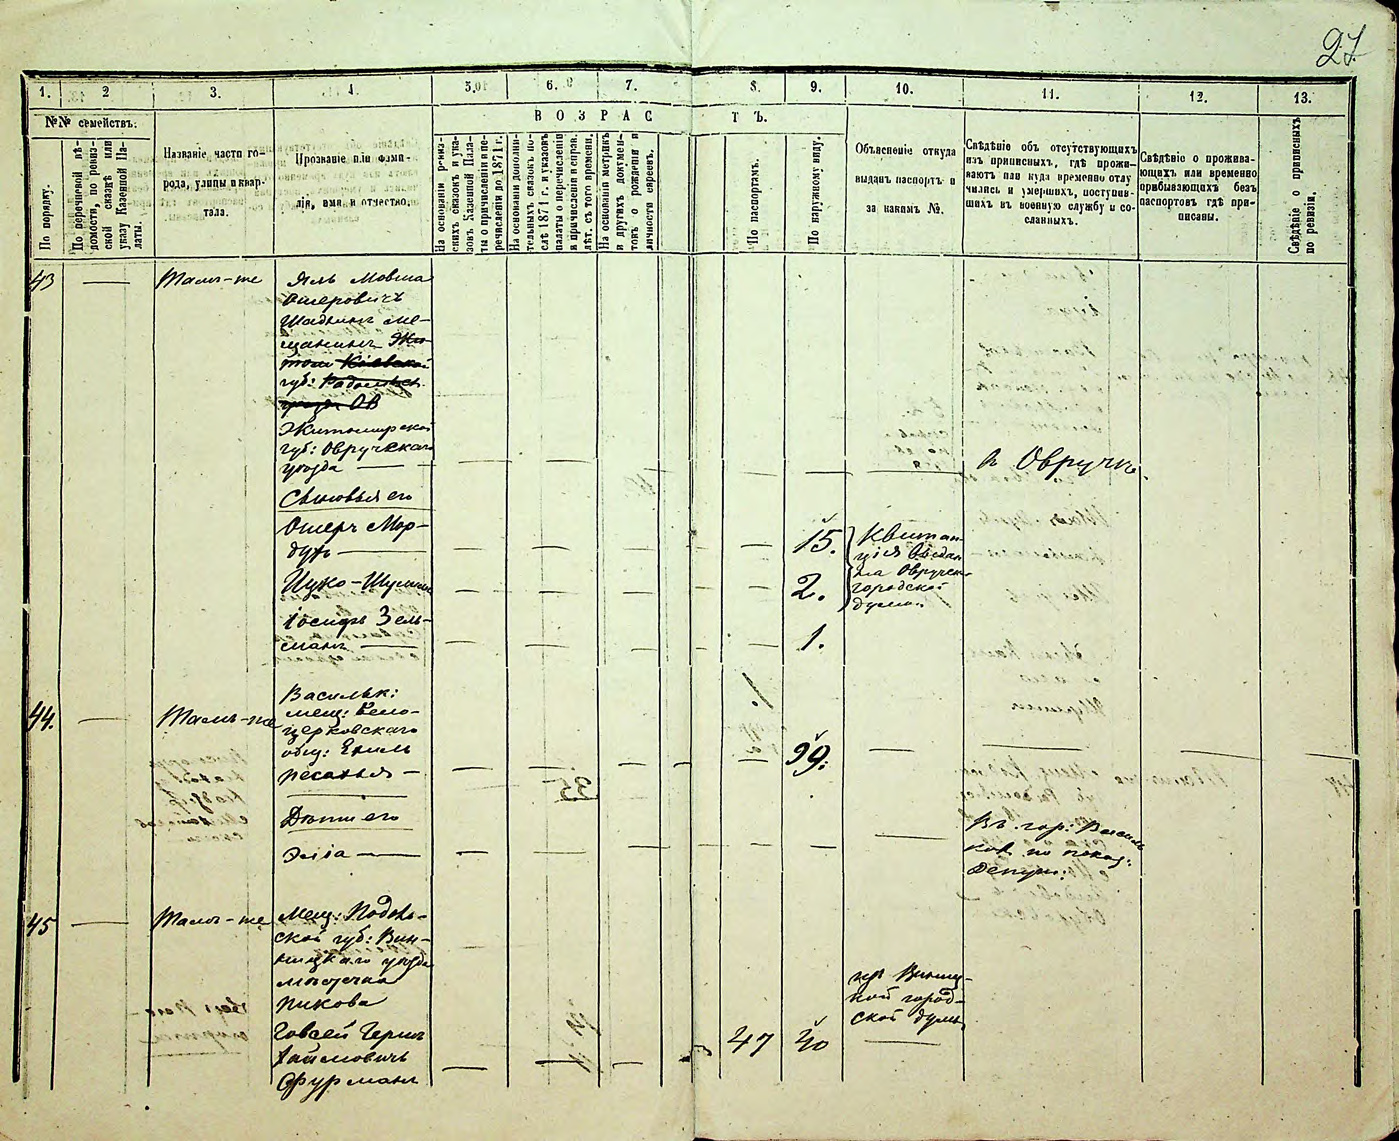 27
1. 2 3. 4. 5. 6. 7. 8. 9. 10. 11. 12. 13.
№№ семействъ.
В О З Р А С Т Ъ.
По порядку.
По перечневой вѣ-
домости, по ревиз-
ской сказкѣ или
указу Казенной Па-
латы.
Названіе части го-
рода, улицы и квар-
тала.
Прозваніе или фами-
лія, имя и отчество.
На основаніи ревиз-
скихъ сказокъ и ука-
зовъ Казенной Пала-
ты о причисленіи и пе-
речисленіи до 1871 г.
На основаніи дополни-
тельныхъ сказокъ по-
слѣ 1871 г. и указовъ
палаты о перечисленіи
и причисленіи и справ.
лѣт. съ того времени.
На основаніи метрикъ
и другихъ докумен-
товъ о рожденіи и
личности евреевъ.
По паспортамъ.
По наружному виду.
Объясненіе откуда
выданъ паспортъ и
за какимъ №.
Свѣдѣніе объ отсутствующихъ
изъ приписныхъ, гдѣ прожи-
ваютъ или куда временно отлу
чились и умершихъ, поступив-
шихъ въ военную службу и со-
сланныхъ.
Свѣдѣніе о прожива-
ющихъ или временно
прибывающихъ безъ
паспортовъ гдѣ при-
писаны.
Свѣдѣніе о приписныхъ
по ревизіи.
43 — Тамъ-же
Яль Мовша
Ошеровичъ
мѣ-
щанинъ Жи
том Кіевской
губ: Радомысл.
уѣзда ОВ
Житомирской
губ: Овручскаго
уѣзда —
в Овручѣ
Сыновья его
Ошеръ Мор-
дух — 15.
Квитан-
ція выдан-
на Овруч.
городской
думой
Ицко-Шулим 2.
Іосифъ Зель-
манъ — 1.
44. — Тамъ-же
Васильк:
мещ: Бело-
церковскаго
общ:
— 35 39.
Дѣти его
Элія —
Въ гор: Василь
ков по
45 — Тамъ-же
Мещ: Подоль-
ской губ: Вин-
ницкаго уѣзда
мѣстечка
Пикова
Говсей Герш
Хаимовичъ
Фурманъ
47 40
Винниц-
кой город-
ской думы